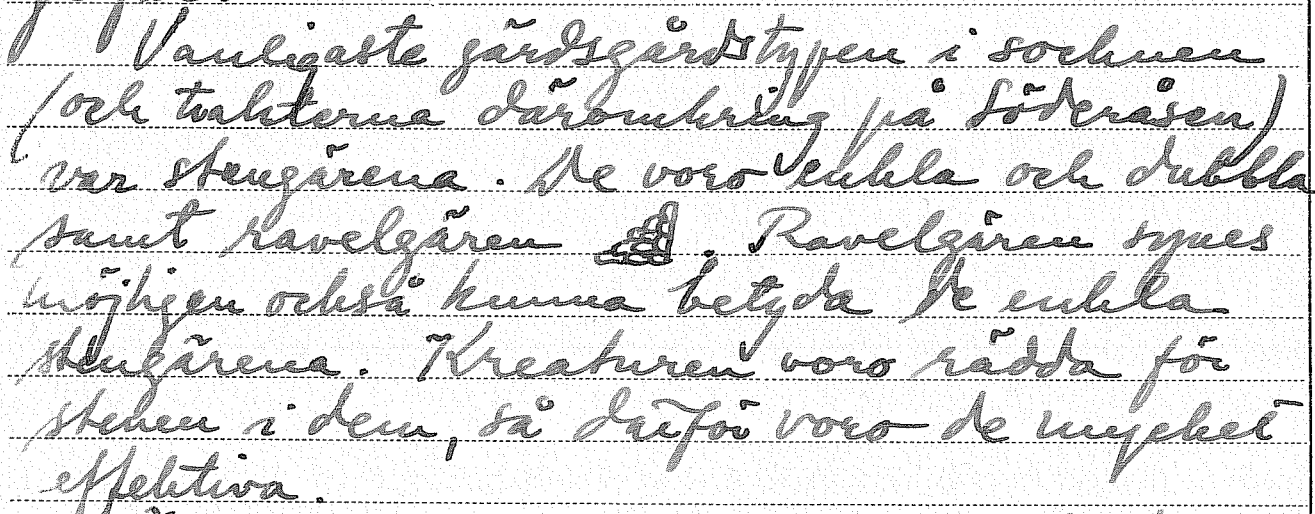 Vanligaste gärdsgårdstypen i socknen
(och trakterna däromkring på Söderåsen)
var stengärena. De voro enkla och dubbla
samt ravelgären . Ravelgären synes
möjligen också kunna betyda de enkla
stengärena. Kreaturen voro rädda för
stenen i dem, så därför voro de mycket
effektiva.